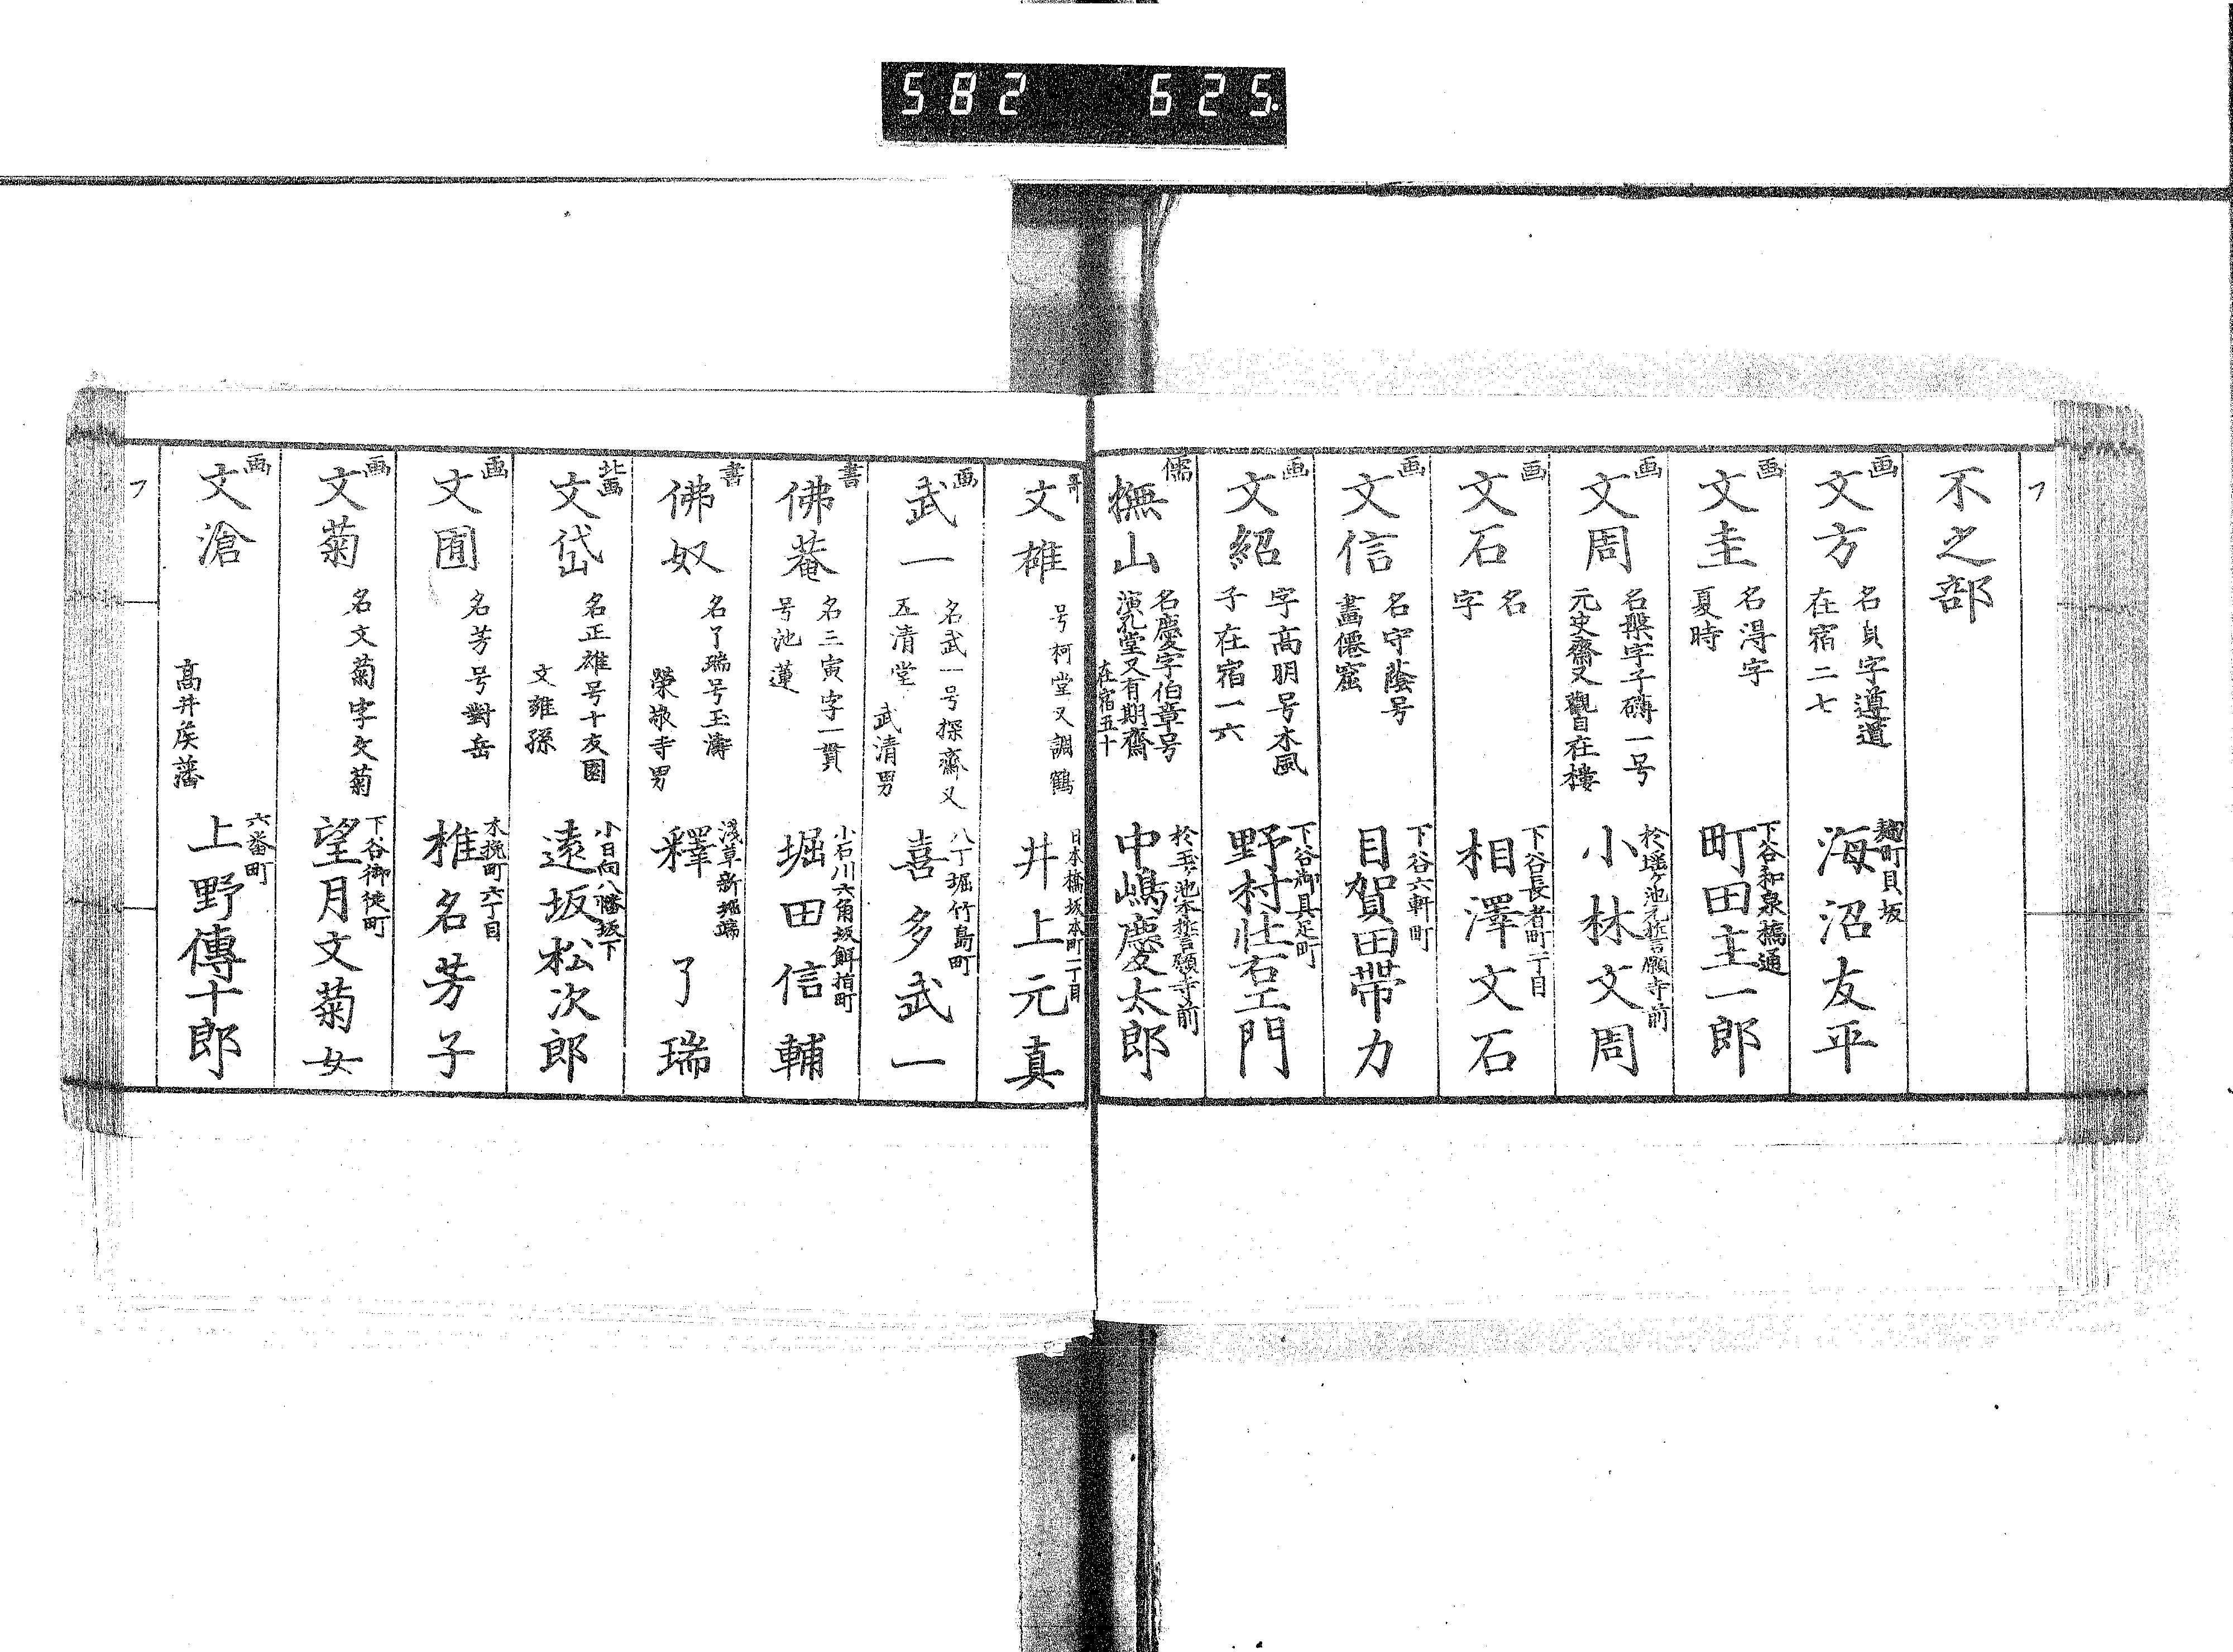 582 625.
フ
不之部
画
文方
名貞字遵道
在宿二七
麹町貝坂
海沼友平
画
文圭
名淂字
夏時
下谷和泉橋通
町田主一郎
画
文周
名槃字子磚一号
元史齋又觀自在樓
於瑶池元誓願寺前
小林文周
画
文石
名
字
下谷長者町一丁目
相澤文石
画
文信
名守蔭号
畫僊窟
下谷六軒町
目賀田帶力
画
文紹
字高明号木風
子在宿一六
下谷御具足町
野村壮右エ門
儒
撫山
名慶字伯章号
演孔堂又有期齋
在宿五十
於玉ヶ池元誓願寺前
中嶋慶太郎
文雄
号柯堂又調鶴
日本橋坂本町二丁目
井上元真
画
武一
名武一号探齋又
五清堂
武清男
八丁堀竹島町
喜多武一
書
佛菴
名三寅字一貫
号池蓮
小石川六角坂餌指町
堀田信輔
書
佛奴
名了瑞号玉濤
榮敬寺男
淺草新堀端
釋了瑞
北画
文岱
名正雄号十友園
文雍孫
小日向八幡坂下
遠坂松次郎
画
文囿
名芳号對岳
木挽町六丁目
椎名芳子
画
文菊
名文菊字文菊
下谷御徒町
望月文菊女
画
文滄
高井矦藩
六番町
上野傳十郎
フ